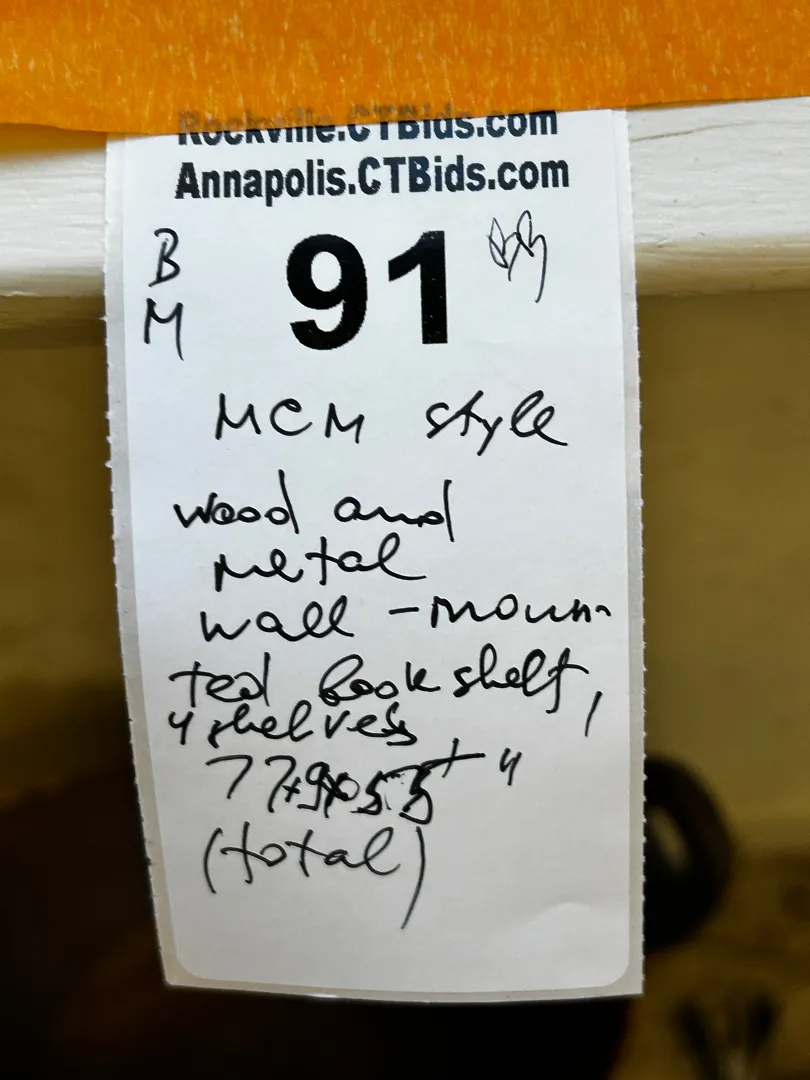 Rockville.CTBids.com
Annapolis.CTBids.com
B
M
91
MCM style
wood and
metal
wall-moun-
ted bookshelf,
4 shelves
(total)